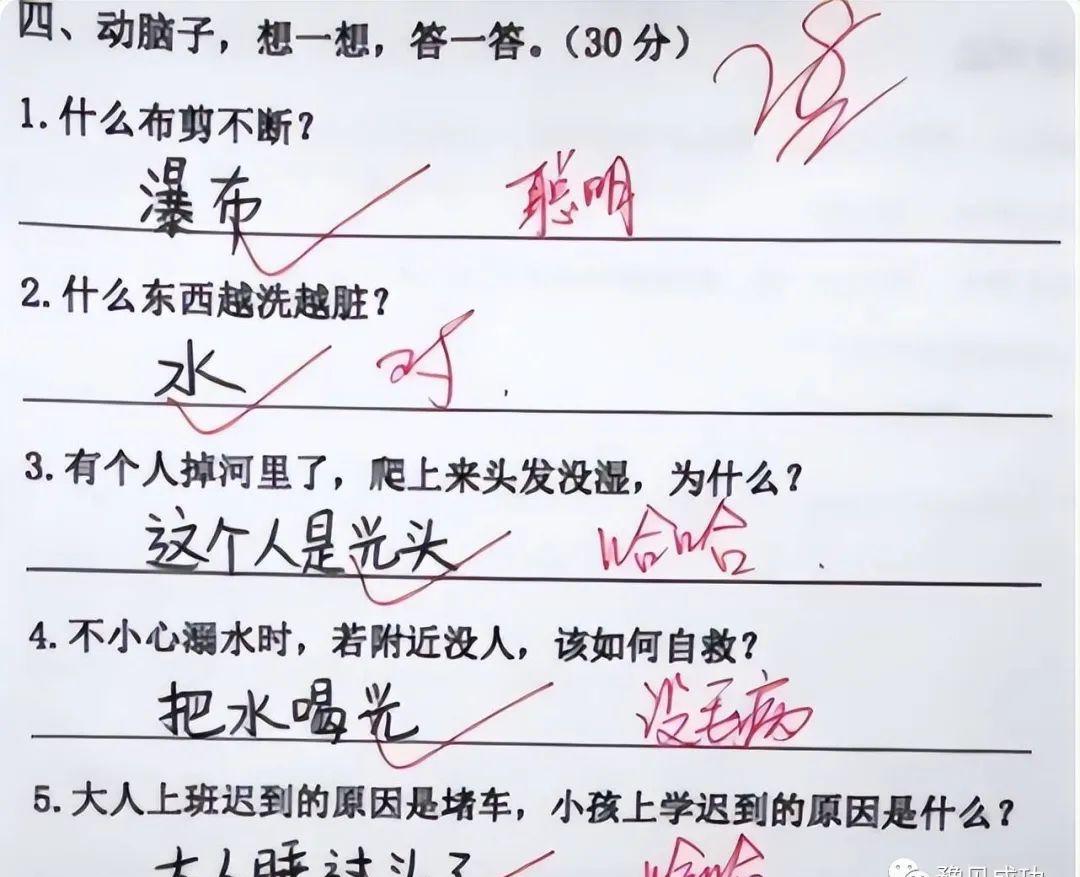 四、动脑子，想一想，答一答。（30 分）
1. 什么布剪不断？
瀑布 聪明
2. 什么东西越洗越脏？
水 对
3. 有个人掉河里了，爬上来头发没湿，为什么？
这个人是光头 哈哈
4. 不小心溺水时，若附近没人，该如何自救？
把水喝光 没毛病
5. 大人上班迟到的原因是堵车，小孩上学迟到的原因是什么？
大人睡过头了 哈哈
豫见成功